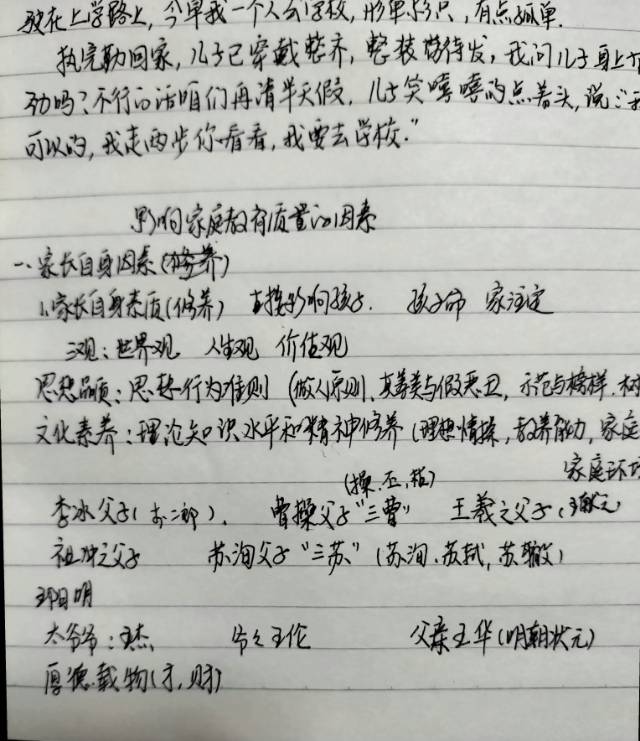 在上学路上,今早我一个人去学校,形单影只,有点孤单.
执完勤回家,儿子已穿戴整齐,整装待发,我问儿子身上
动吗?不行的话咱们再请半天假,儿子笑嘻嘻的点着头,说:"我
可以的,我走两步你看看,我要去学校."
影响家庭教育质量的因素
一、家长自身因素(修养)
1.家长自身素质(修养) 直接影响孩子. 孩子命 家注定
三观:世界观 人生观 价值观
思想品质:思想行为准则(做人原则、真善美与假恶丑,示范与榜样.树
文化素养:理论知识水平和精神修养(理想情操,教养能力,家庭
家庭环境
(操、丕、植)
李冰父子(李二郎). 曹操父子"三曹" 王羲之父子(王献之
祖冲之父子 苏洵父子"三苏"(苏洵.苏轼,苏辙)
王阳明
太爷爷:王杰 爷爷王伦 父亲王华(明朝状元)
厚德载物(才,财)